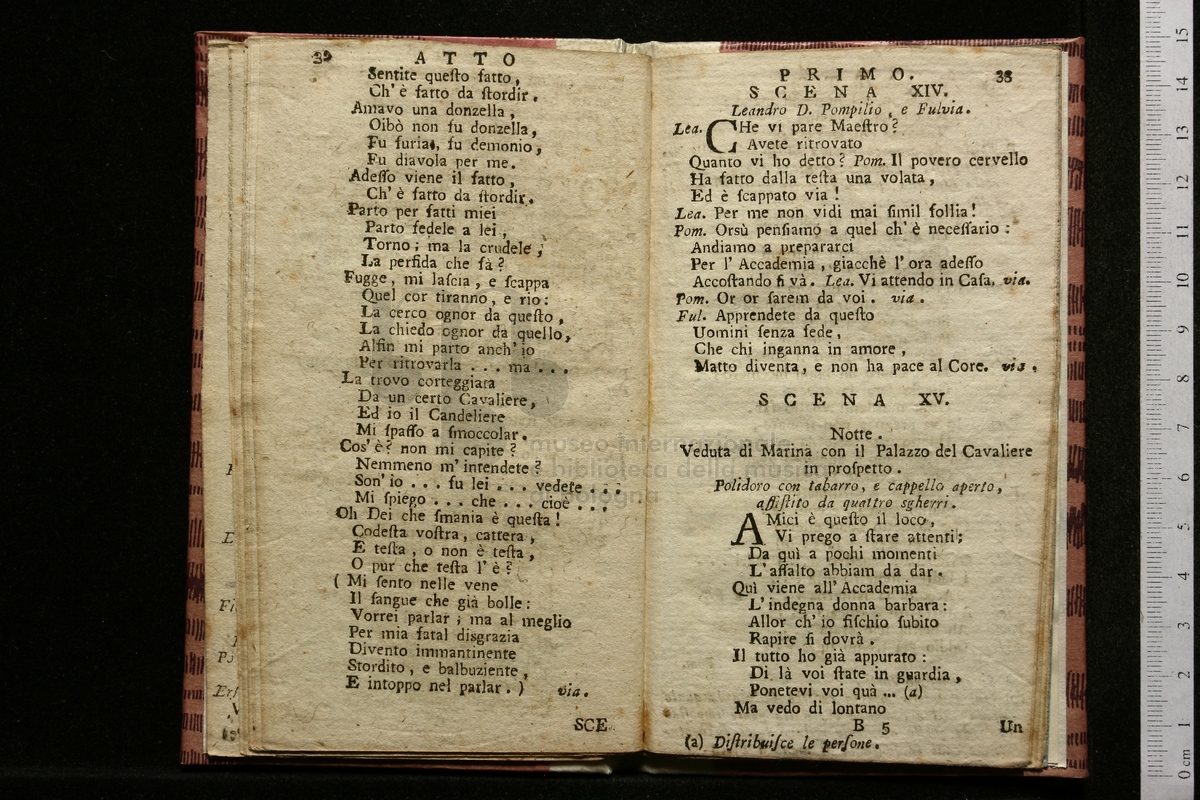 32 ATTO
Sentite queſto fatto,
Ch' è fatto da ſtordir.
Amavo una donzella,
Oibò non fu donzella,
Fu furia, fu demonio,
Fu diavola per me.
Adeſſo viene il fatto,
Ch' è fatto da ſtordir.
Parto per fatti miei
Parto fedele a lei,
Torno; ma la crudele;
La perfida che fà?
Fugge, mi laſcia, e ſcappa
Quel cor tiranno, e rio:
La cerco ognor da queſto,
La chiedo ognor da quello,
Alfin mi parto anch' io
Per ritrovarla . . . ma . . .
La trovo corteggiata
Da un certo Cavaliere,
Ed io il Candeliere
Mi ſpaſſo a ſmoccolar.
Cos' è? non mi capite?
Nemmeno m' intendete?
Son' io . . . fu lei . . . vedete . . .
Mi ſpiego . . . che . . . cioè . . .
Oh Dei che ſmania è queſta!
Codeſta voſtra, cattera,
E teſta, o non è teſta,
O pur che teſta l' è?
( Mi ſento nelle vene
Il ſangue che già bolle:
Vorrei parlar; ma al meglio
Per mia fatal disgrazia
Divento immantinente
Stordito, e balbuziente,
E intoppo nel parlar. ) via.
SCE
PRIMO. 33
SCENA XIV.
Leandro D. Pompilio, e Fulvia.
Lea. CHe vi pare Maeſtro?
Avete ritrovato
Quanto vi ho detto? Pom. Il povero cervello
Ha fatto dalla teſta una volata,
Ed è ſcappato via!
Lea. Per me non vidi mai ſimil follia!
Pom. Orsù penſiamo a quel ch' è neceſſario:
Andiamo a prepararci
Per l' Accademia, giacchè l' ora adeſſo
Accoſtando ſi và. Lea. Vi attendo in Caſa. via.
Pom. Or or farem da voi. via.
Ful. Apprendete da queſto
Uomini ſenza fede,
Che chi inganna in amore,
Matto diventa, e non ha pace al Core. via.
SCENA XV.
Notte.
Veduta di Marina con il Palazzo del Cavaliere
in proſpetto.
Polidoro con tabarro, e cappello aperto,
aſſiſtito da quattro sgherri.
AMici è queſto il loco,
Vi prego a ſtare attenti;
Da quì a pochi momenti
L' aſſalto abbiam da dar.
Quì viene all' Accademia
L' indegna donna barbara:
Allor ch' io fiſchio ſubito
Rapire ſi dovrà.
Il tutto ho già appurato:
Di là voi ſtate in guardia,
Ponetevi voi quà ... (a)
Ma vedo di lontano
B 5 Un
(a) Diſtribuiſce le perſone.
museo internazionale
e biblioteca della musica
di bologna